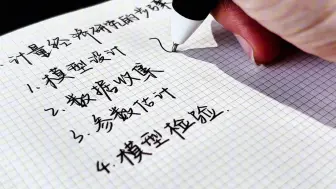 计量经济研究的步骤
1. 模型设计
2. 数据收集
3. 参数估计
4. 模型检验.